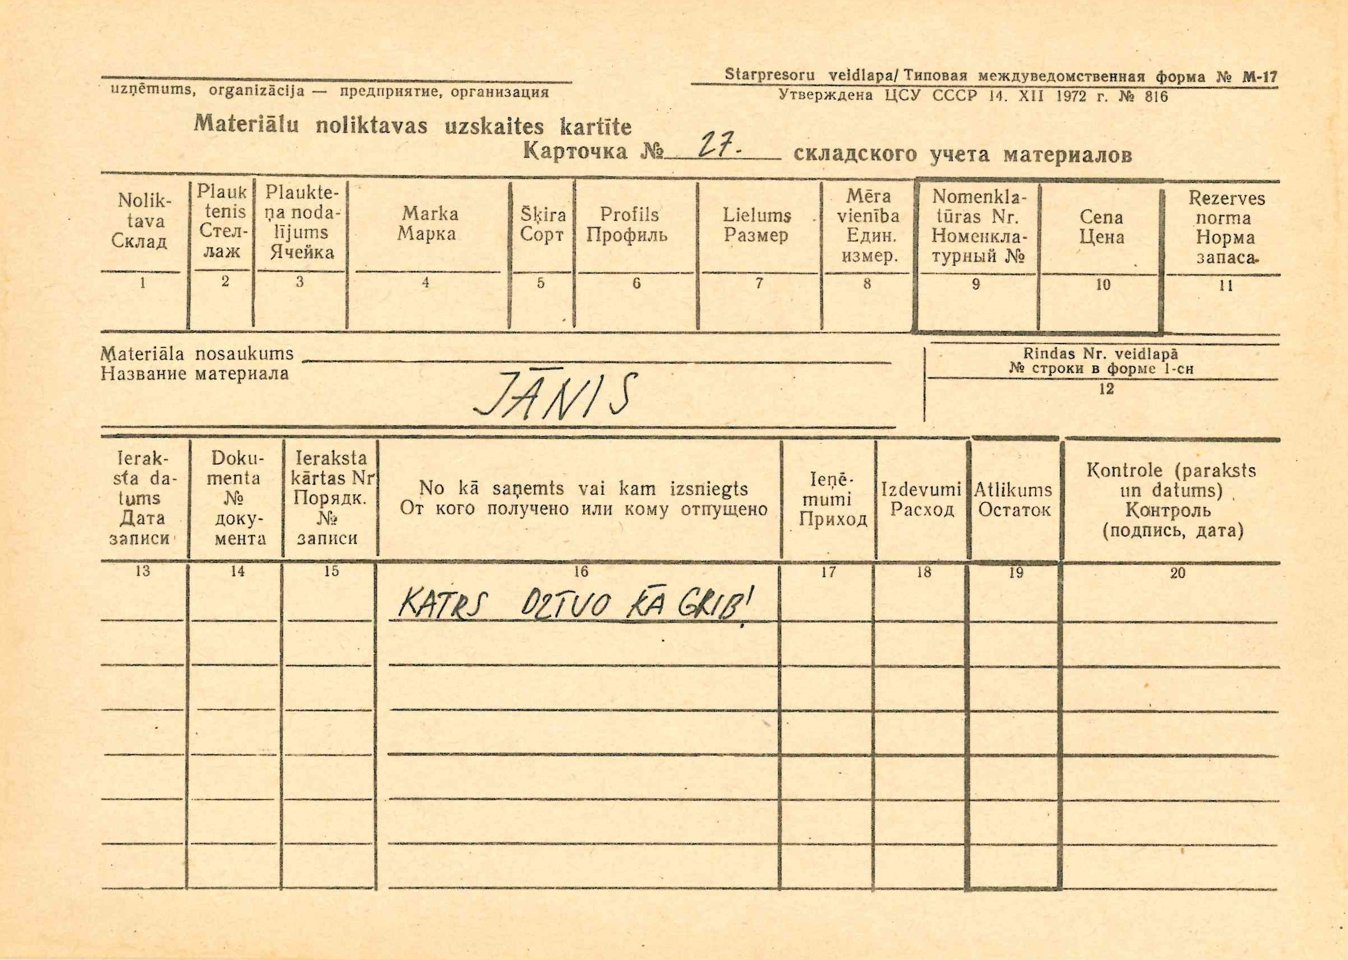 Starpresoru veidlapa/ Типовая междуведомственная форма № М-17
uzņēmums, organizācija — предприятие, организация
Утверждена ЦСУ СССР 14. XII 1972 г. № 816
Materiālu noliktavas uzskaites kartīte
Карточка № 27. складского учета материалов
Nolik-
tava
Склад
Plauk
tenis
Стел-
лаж
Plaukte-
ņa noda-
lījums
Ячейка
Marka
Марка
Šķira
Сорт
Profils
Профиль
Lielums
Размер
Mēra
vienība
Един.
измер.
Nomenkla-
tūras Nr.
Номенкла-
турный №
Cena
Цена
Rezerves
norma
Норма
запаса.
1 2 3 4 5 6 7 8 9 10 11
Materiāla nosaukums
Название материала
JĀNIS
Rindas Nr. veidlapā
№ строки в форме 1-сн
12
Ierak-
sta da-
tums
Дата
записи
Doku-
menta
№
доку-
мента
Ieraksta
kārtas Nr
Порядк.
№
записи
No kā saņemts vai kam izsniegts
От кого получено или кому отпущено
Ieņē-
mumi
Приход
Izdevumi
Расход
Atlikums
Остаток
Kontrole (paraksts
un datums)
Контроль
(подпись, дата)
13 14 15 16 17 18 19 20
KATRS DZĪVO KĀ GRIB!